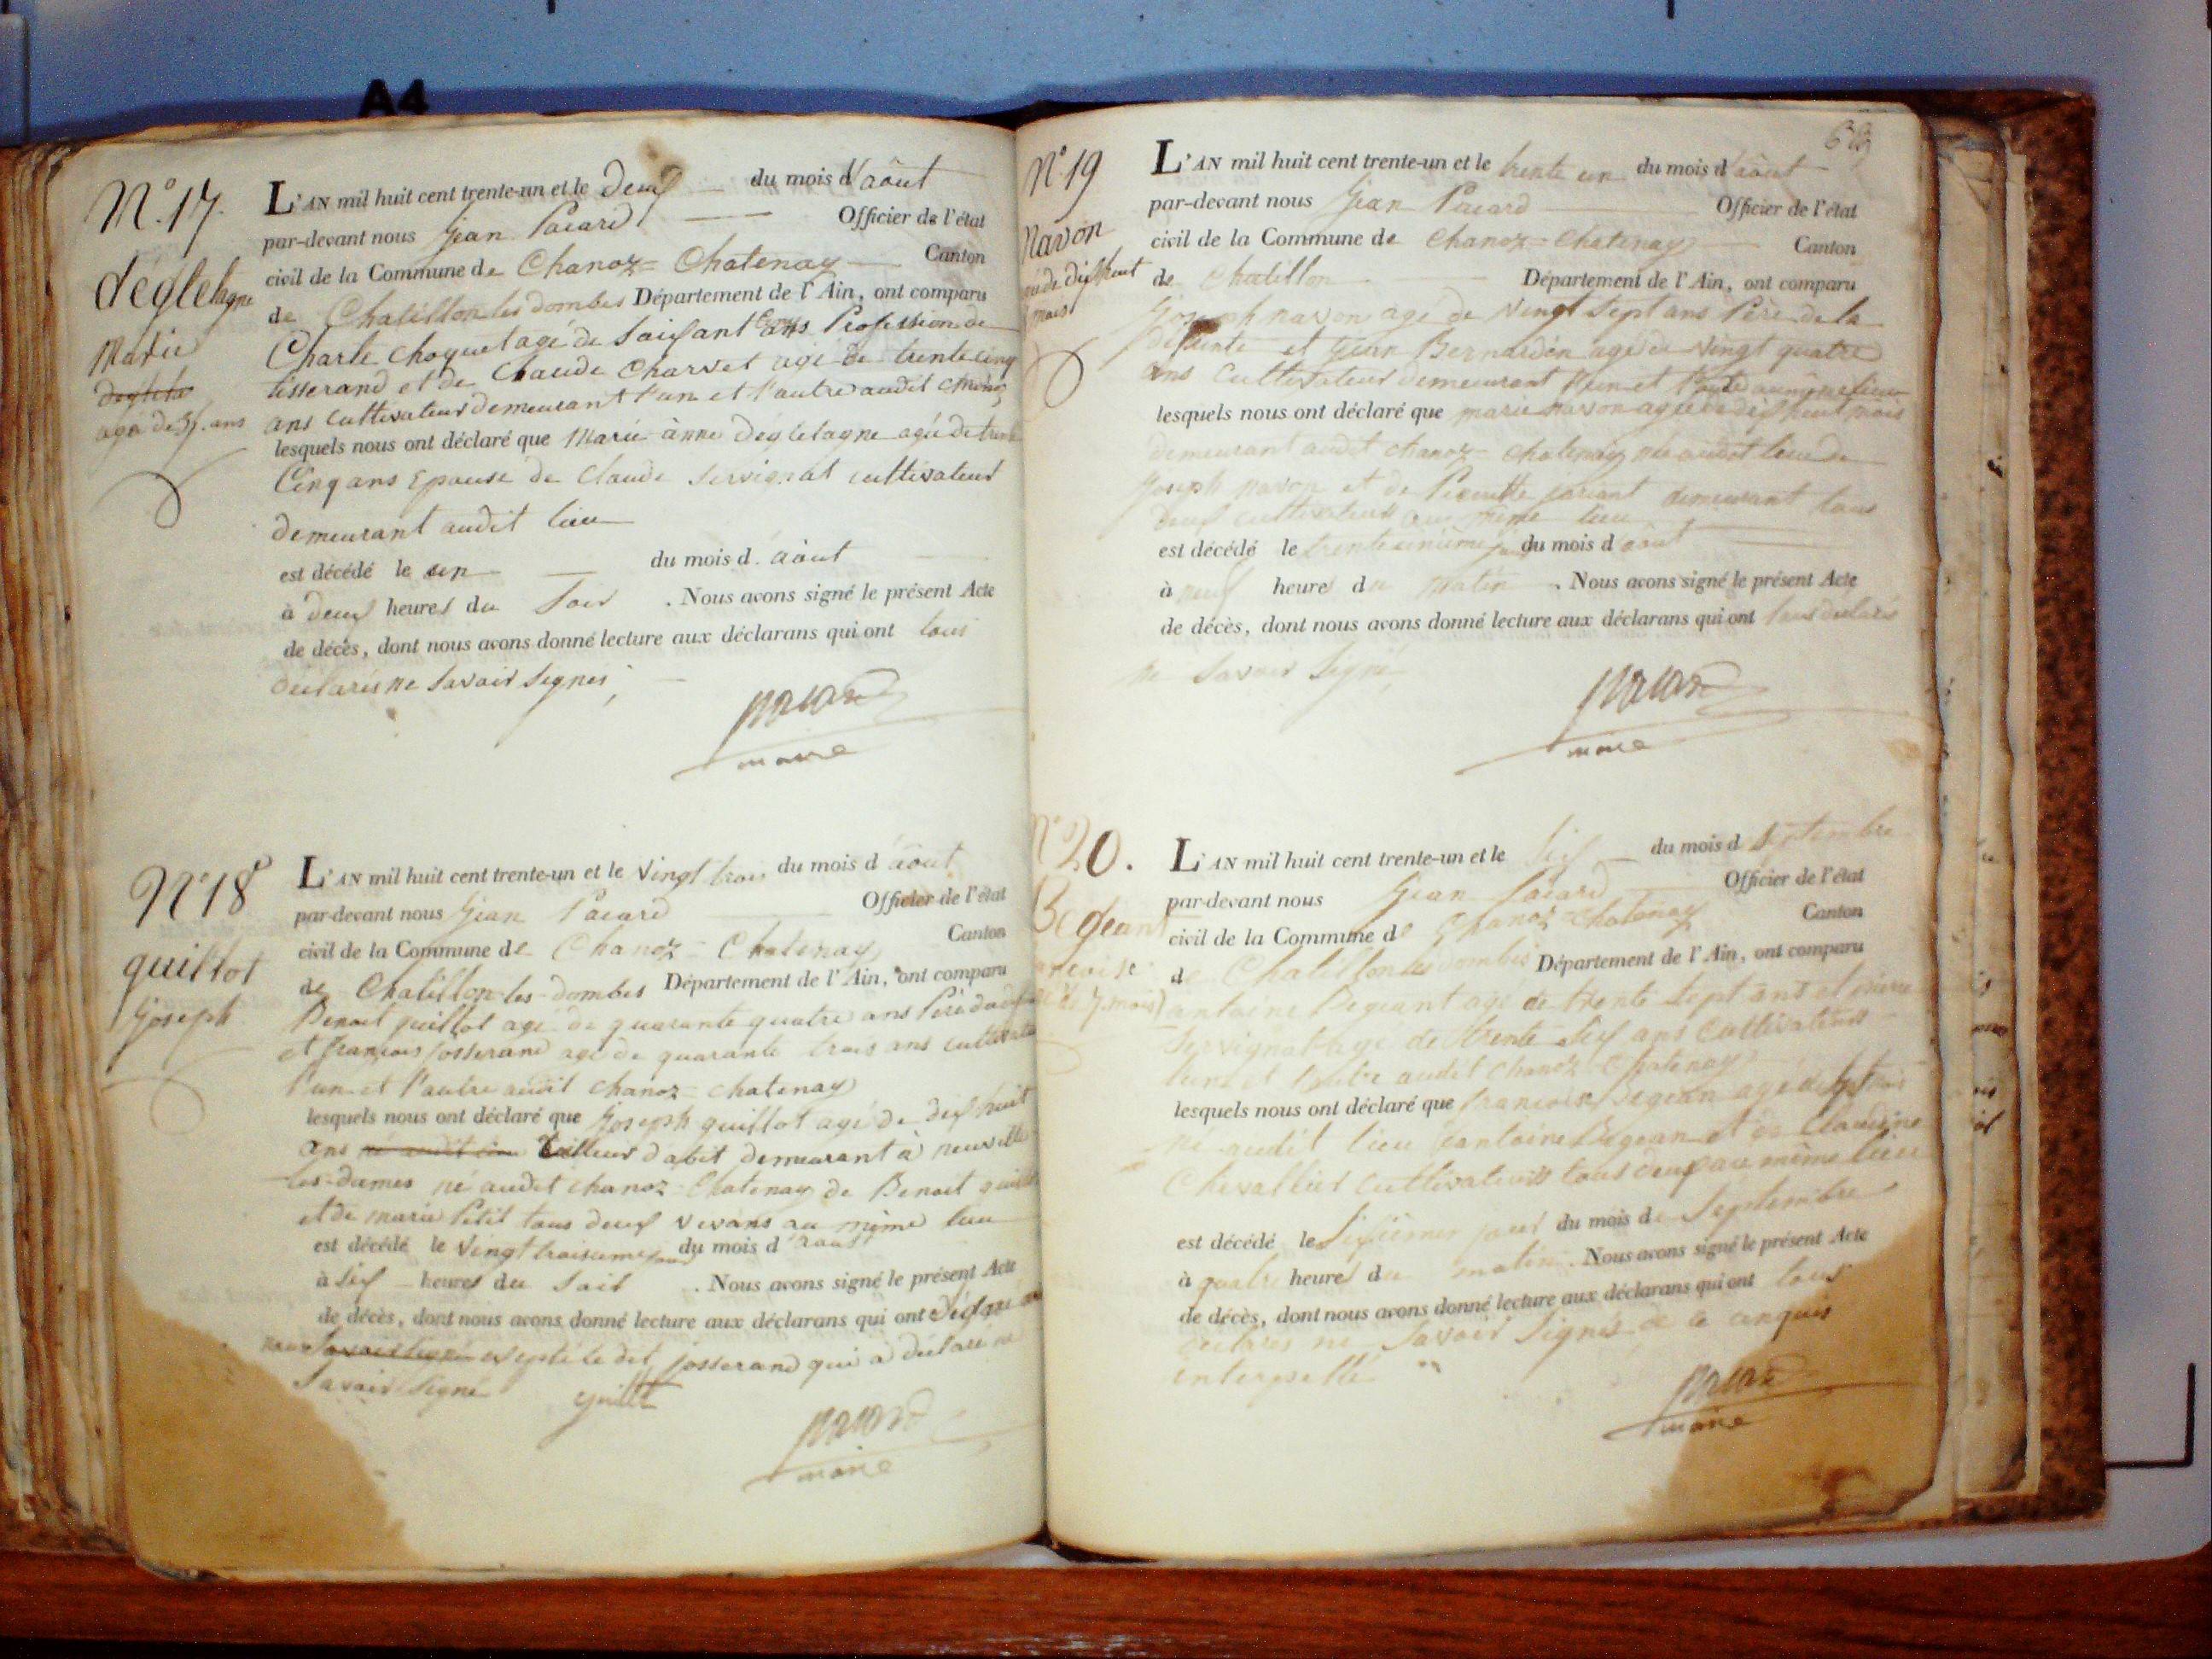 A4
N°. 17.
déglelagne
Marie
agé de 35. ans
L'AN mil huit cent trente-un et le Deux du mois d'août
par-devant nous Jean Pacard Officier de l'état
civil de la Commune de Chanoz=Chatenay Canton
de Chatillon les dombes Département de l'Ain, ont comparu
Charle Choquet agé de Soixant ans Profession de
tisserand et de Claude Charvet agé de trente cinq
ans cultivateur demeurant l'un et l'autre audit Chanoz
lesquels nous ont déclaré que Marie anne déglelagne agée de trente
Cinq ans Epouse de Claude Servignat cultivateur
demeurant audit lieu
est décédé le un du mois d. août
à deux heures du Soir . Nous avons signé le présent Acte
de décès, dont nous avons donné lecture aux déclarans qui ont tous
declarés ne Savoir Signés
pacard
maire
N° 18
guillot
Joseph
L'AN mil huit cent trente-un et le Vingt trois du mois d'août
par-devant nous Jean Pacard Officier de l'état
civil de la Commune de Chanoz=Chatenay Canton
de Chatillon-les-dombes Département de l'Ain, ont comparu
Benoit guillot agé de quarante quatre ans Père du
et françois josserand agé de quarante trois ans
l'un et l'autre audit Chanoz=chatenay
lesquels nous ont déclaré que Joseph guillot agé de dix huit
ans tailleur d'abit demeurant à neuville
les-dames né audit chanoz=Chatenay de Benoit
et de marie Petit tous deux vivans au même lieu
est décédé le Vingt troisieme jour du mois d'août
à Six heures du Soir . Nous avons signé le présent Acte
de décès, dont nous avons donné lecture aux déclarans qui ont
exepté le dit josserand qui a déclaré ne
Savoir Signé guillot
pacard
maire
63
N° 19
Navon
agé de dix huit
mois
L'AN mil huit cent trente-un et le trente un du mois d'août
par-devant nous Jean Pacard Officier de l'état
civil de la Commune de Chanoz=Chatenay Canton
de Chatillon Département de l'Ain, ont comparu
Joseph navon agé de Vingt Sept ans Père de la
Défunte et Jean Bernardin agé de Vingt quatre
ans Cultivateur demeurant l'un et l'autre au même lieu
lesquels nous ont déclaré que marie navon agée de dix huit mois
demeurant audit chanoz=chatenay née audit lieu de
Joseph navon et de demeurant tous
Deux cultivateurs au même lieu
est décédé le trente unieme jour du mois d'août
à neuf heures du Matin . Nous avons signé le présent Acte
de décès, dont nous avons donné lecture aux déclarans qui ont tous declarés
ne Savoir Signé
pacard
maire
N° 20.
Begeant
agé de 7 mois
L'AN mil huit cent trente-un et le Six du mois de Septembre
par-devant nous Jean Pacard Officier de l'état
civil de la Commune de Chanoz=Chatenay Canton
de Chatillon les dombes Département de l'Ain, ont comparu
antoine Begeant agé de trente Sept ans et
Servignat agé de trente Six ans Cultivateurs
l'un et l'autre audit Chanoz=Chatenay
lesquels nous ont déclaré que françoise Begean agé de Sept mois
né audit lieu d'antoine Begean et de Claudine
Chevallier Cultivateurs tous deux au même lieu
est décédé le Sixieme jour du mois de Septembre
à quatre heures du matin . Nous avons signé le présent Acte
de décès, dont nous avons donné lecture aux déclarans qui ont tous
declarés ne Savoir Signés de ce enquis
interpellé
pacard
maire